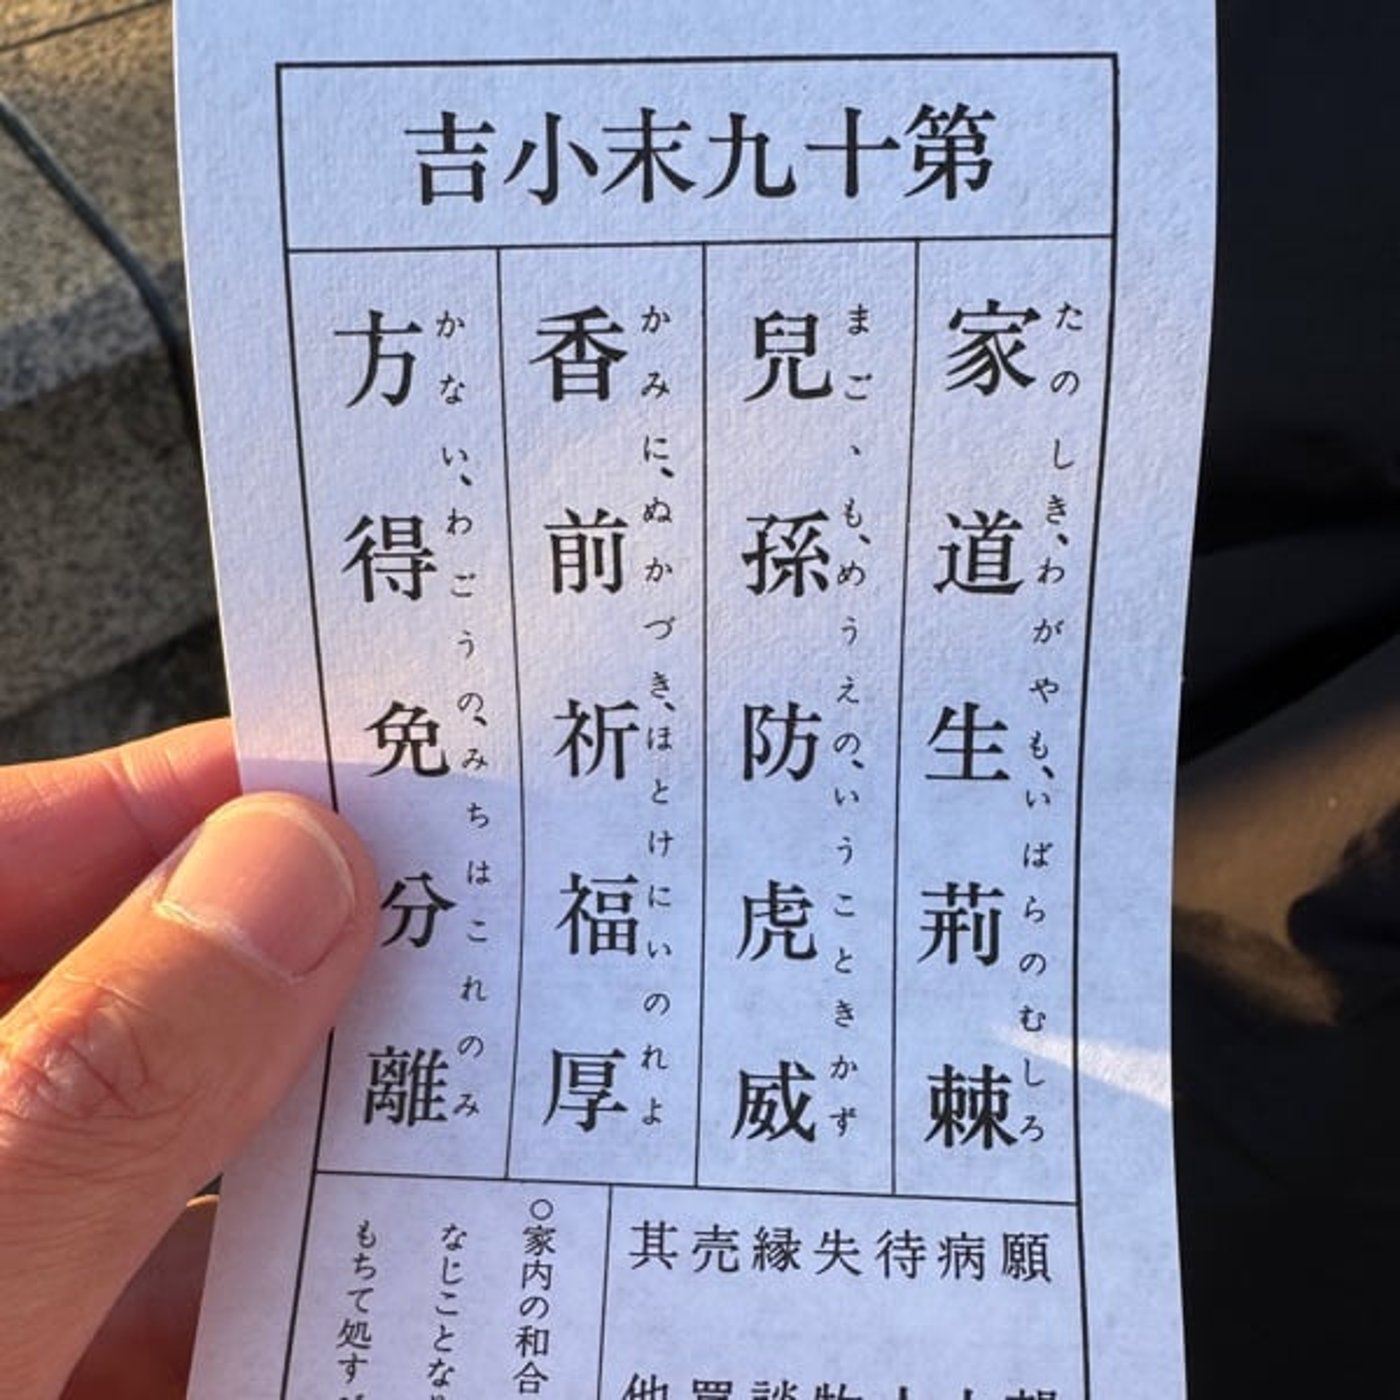 第十九末小吉
家道生荊棘
たのしき、わがやも、いばらのむしろ
兒孫防虎威
まご、も、めうえの、いうことときかず
香前祈福厚
かみに、ぬかづき、ほとけにいのれよ
方得免分離
かない、わごうの、みちはこれのみ
願
病
待
失
縁談
売買
其他
○家内の和合
なじことな
もちて処す